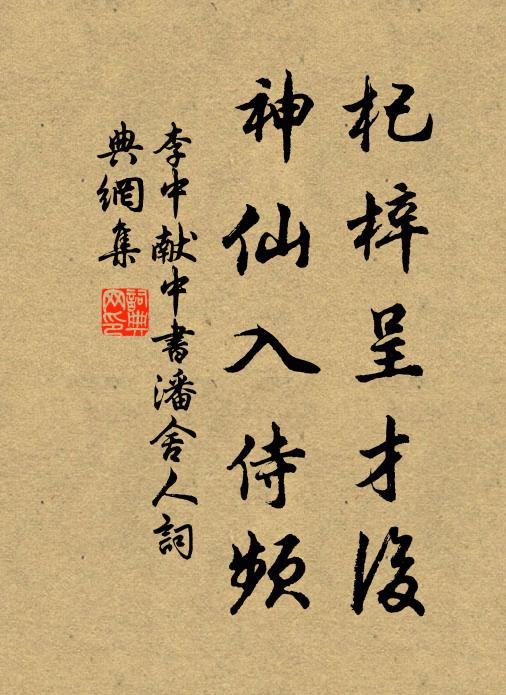 杞梓呈才後
神仙入侍頻
李中献中書潘舍人詞
典網集
詞典
网印